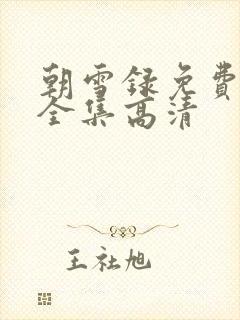 朝雪録免费
全集高清
王社旭